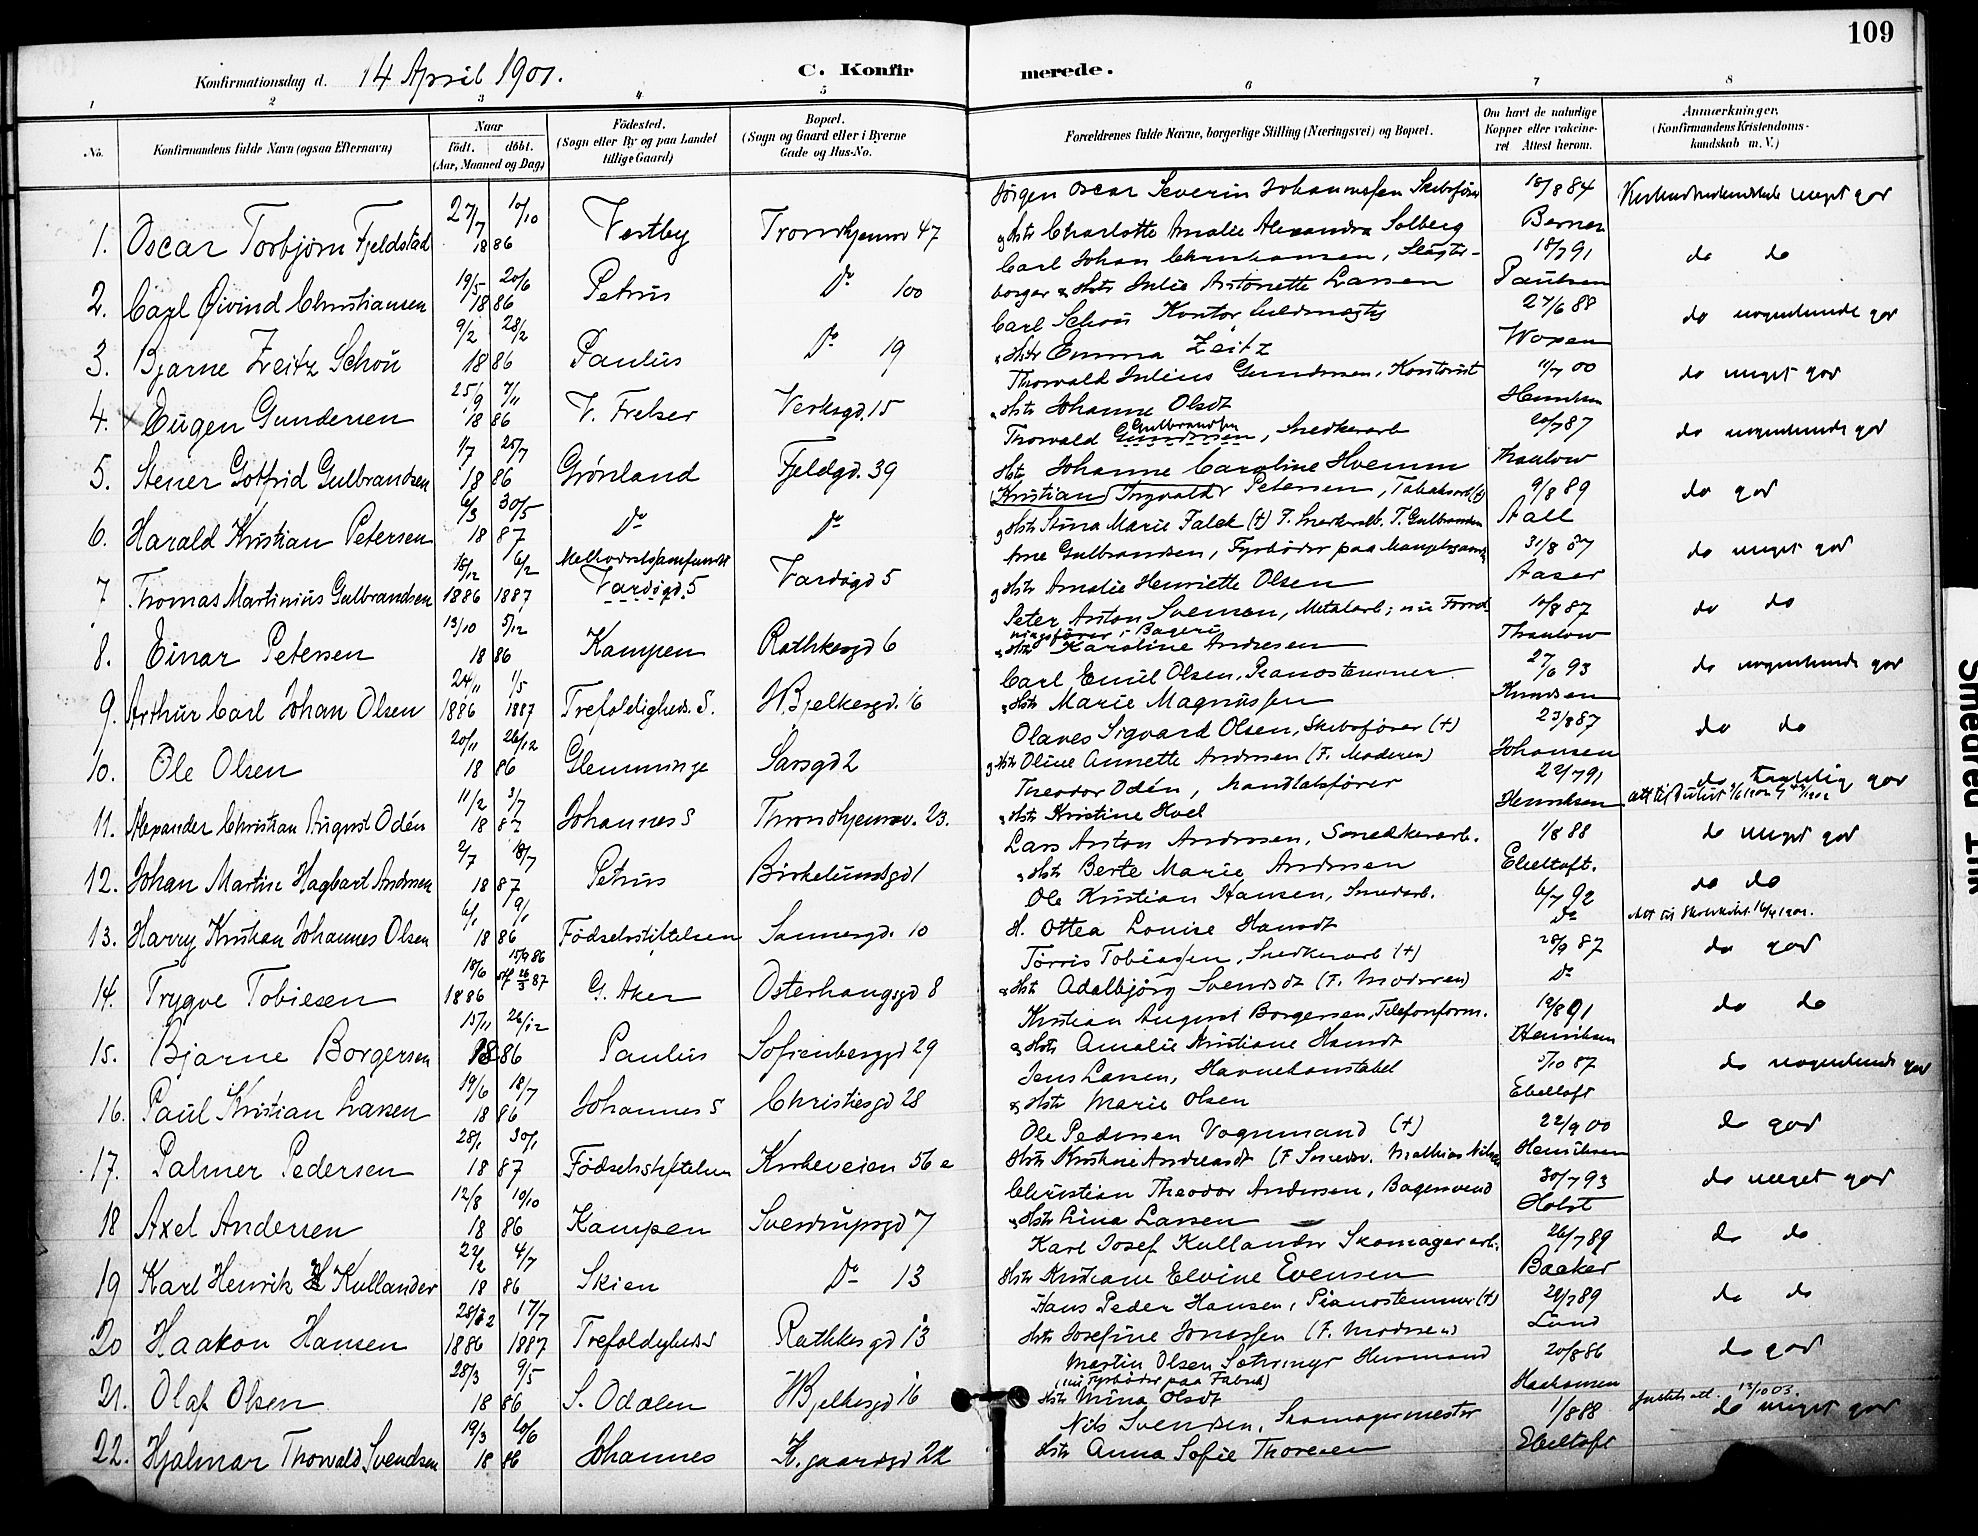 109
Konfirmationsdag d. 14 April 1901. C. Konfirmerede.
1 2 3 4 5 6 7 8
No. Konfirmandens fulde Navn (ogsaa Efternavn) Naar født. døbt. (Aar, Maaned og Dag) Fødested. (Sogn eller By og paa Landet tillige Gaard) Bopæl. (Sogn og Gaard eller i Byerne Gade og Hus-No. Forældrenes fulde Navne, borgerlige Stilling (Næringsvei) og Bopæl. Om havt de naturlige Kopper eller vakcineret Attest herom. Anmærkninger. (Konfirmandens Kristendomskundskab m. V.)
1. Oscar Torbjørn Fjeldstad 27/7 10/10 1886 Vestby Tromhjemsv 47 Jørgen Oscar Severin Johannessen Skibsfører 18/8 84 meget god
og Hstr Charlotte Amalie Alexandra Solberg Berner
2. Carl Øivind Christiansen 19/5 20/6 1886 Petrus Do 100 Carl Johan Christiansen, 18/7 91 do do
borger & Hstr Julie Antonette Larsen Paulsen
3. Bjarne Zeitz Schou 9/2 28/2 1886 Paulus Do 19 Carl Schou Kontorfuldmægtig 27/6 88 do nogenlunde god
& Hstr Emma Zeitz Woxen
4. Eugen Gundersen 25/9 7/11 1886 V. Frelser Verksgd. 15 Thorvald Julius Gundersen, Kontorist 11/7 00 do meget god
& Hstr Johanne Olsdt Henriksen
5. Stener Gotfrid Gulbrandsen 1/7 25/7 1886 Grønland Fjeldgd. 39 Thorvald Gundersen Gulbrandsen, Snedkerarb 20/7 87 do nogenlunde god
Hstr Johanne Caroline Hvemm Thaulow
6. Harald Kristian Petersen 6/3 30/5 1887 Do Do Kristian Ingvald Petersen, Tobaksarb (+) 9/8 89 do god
og Hstr Stina Marie Falck (+) F. Snedkerarb. T. Gulbrandsen Aall
7 Thomas Martinius Gulbrandsen 18/12 6/2 1886 1887 Methodistsamfundet Vardøgd. 5 Vardøgd 5 Arne Gulbrandsen, Fyrbøder paa 31/8 87 do meget god
og Hstr Amalie Henriette Olsen Aaser
8. Einar Petersen 13/10 5/12 1886 Kampen Rathkesgd 6 Peter Anton Svensen, Metalarb; nu 10/8 87 do do
i Bageri
& Hstr Karoline Andresen Thaulow
9. Arthur Carl Johan Olsen 24/11 1/5 1886 1887 Trefoldigheds. S. H Bjelkesgd. 16 Carl Emil Olsen, Pianostemmer 27/6 93 do nogenlunde god
& Hstr Marie Magnussen Knudsen
10. Ole Olsen 20/11 26/12 1886 Glemminge Sarsgd 2 Olaves Sigvard Olsen, Skibsfører (+) 23/8 87 do do
og Hstr Oline Annette Andersen (F. Moderen) Johansen
11. Alexander Christian August Odén 11/2 3/7 1887 Johannes S Throndhjemsv. 23. Theodor Odén, Mandtalsfører 22/7 91 do temmelig god
& Hstr Kristine Hoel Henriksen
12. Johan Martin Hagbart Andersen 2/7 18/7 1887 Petrus Birkelundsgd 1 Lars Anton Andersen, Snedkerarb. 1/8 88 do meget god
& Hstr Berte Marie Andersen Ebeltoft.
13. Harry Kristian Johannes Olsen 6/1 9/1 1886 Fødselsstiftelsen Sannergd. 10 Ole Kristian Hansen, Smedarb. 6/7 92 do do
H. Ottea Louise Hansdt Do
14. Trygve Tobiesen 18/6 15/9 86 stf 26/3 87 1886 G. Aker Osterhausgd 8 Tørris Tobiassen, Snedkerarb (+) 28/9 87 do god
& Hstr Adalbjørg Svendsdt (F. Moderen) Do
15. Bjarne Borgersen 15/11 26/12 1886 Paulus Sofienberggd 29 Kristian August Borgersen, Telefonform. 19/8 91 do do
& Hstr Amalie Kristiane Hansdt Henriksen
16. Paul Kristian Larsen 19/6 18/7 1886 Johannes S Christiesgd 28 Jens Larsen, Havnekonstabel 5/10 87 do nogenlunde god
& Hstr Marie Olsen Ebeltoft
17. Palmer Pedersen 28/1 30/1 1887 Fødselsstiftelsen Kirkeveien 56 e Ole Pedersen Vognmand (+) 22/9 00 do god
Hstr Kristine Andreasdt (F Smedsv. Mathias Nilsen Henriksen
18 Axel Andersen 12/8 10/10 1886 Kampen Sverdrupsgd 7 Christian Theodor Andersen, Bagersvend 30/7 93 do meget god
& Hstr Lina Larsen Holst
19 Karl Henrik H Kullander 22/2 4/7 1886 Skien Do 13 Karl Josef Kullander Skomagerarb. 26/7 89 do do
Hstr Kristiane Elvine Evensen Backer
20 Haakon Hansen 28/12 17/7 1886 1887 Trefoldigheds S Rathkesgd 13 Hans Peder Hansen, Pianostemmer (+) 29/7 89 do do
Hstr Josefine Jonassen (F. Moderen) Lund
21. Olaf Olsen 28/3 9/5 1886 S. Odalen H Bjelkesgd 16 Martin Olsen Husmand 20/8 86 do god
(nu Fyrbøder paa Fabrik)
Hstr Mina Olsdt Haakonsen
22. Hjalmar Thorvald Svendsen 19/3 20/6 1886 Johannes K.gaardsgd 22 Nils Svendsen, Skomagermester 1/8 88 13/10 03. do meget god
Hstr Anna Sofie Thoresen Ebeltoft
Smedred Ink